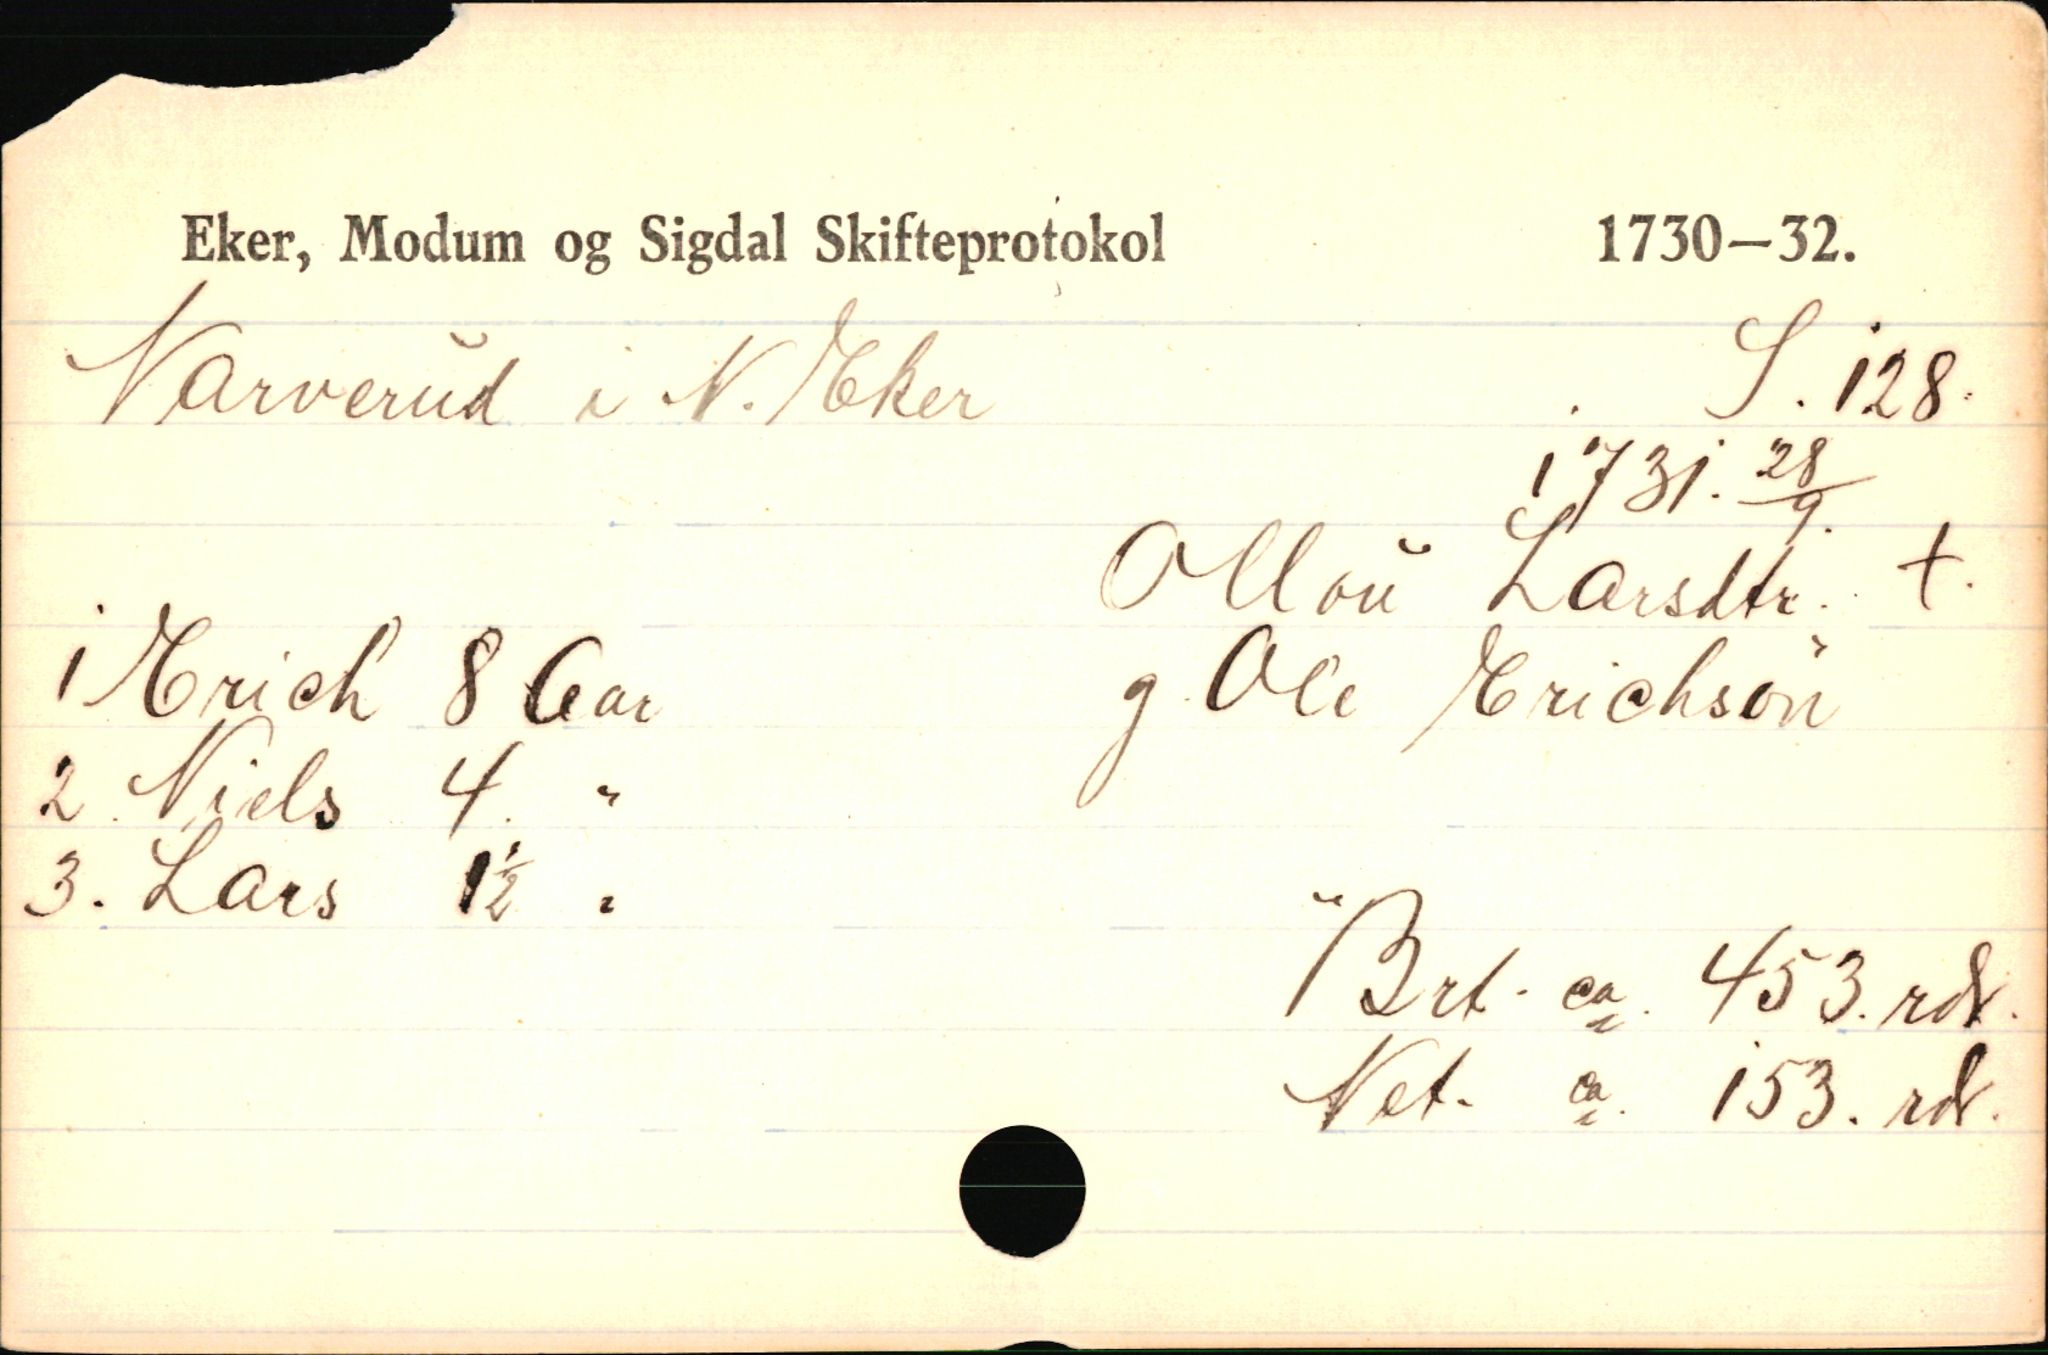 Eker, Modum og Sigdal Skifteprotokol 1730—32.
Narverud i N. Eker S. 128.
1731. 28/9.
Ollou Larsdtr. +.
1 Erich 8 Aar g. Ole Erichsøn
2 Niels 4. "
3. Lars 1½ "
Brt. ca. 453. rdr.
Net. ca. 153. rdr.